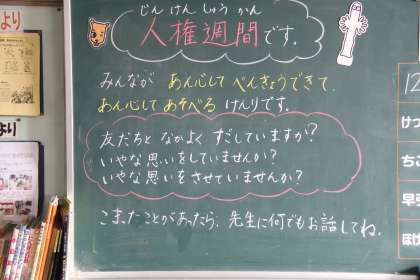 じん けん しゅう かん
人権週間です。
みんなが あん心して べんきょうできて、
あん心して あそべる けんりです。
友だちと なかよく すごしていますか?
いやな思いをしていませんか?
いやな思いをさせていませんか?
こまったことがあったら、先生に何でもお話してね。
より
より
12
けっ
ち
早
ほけ